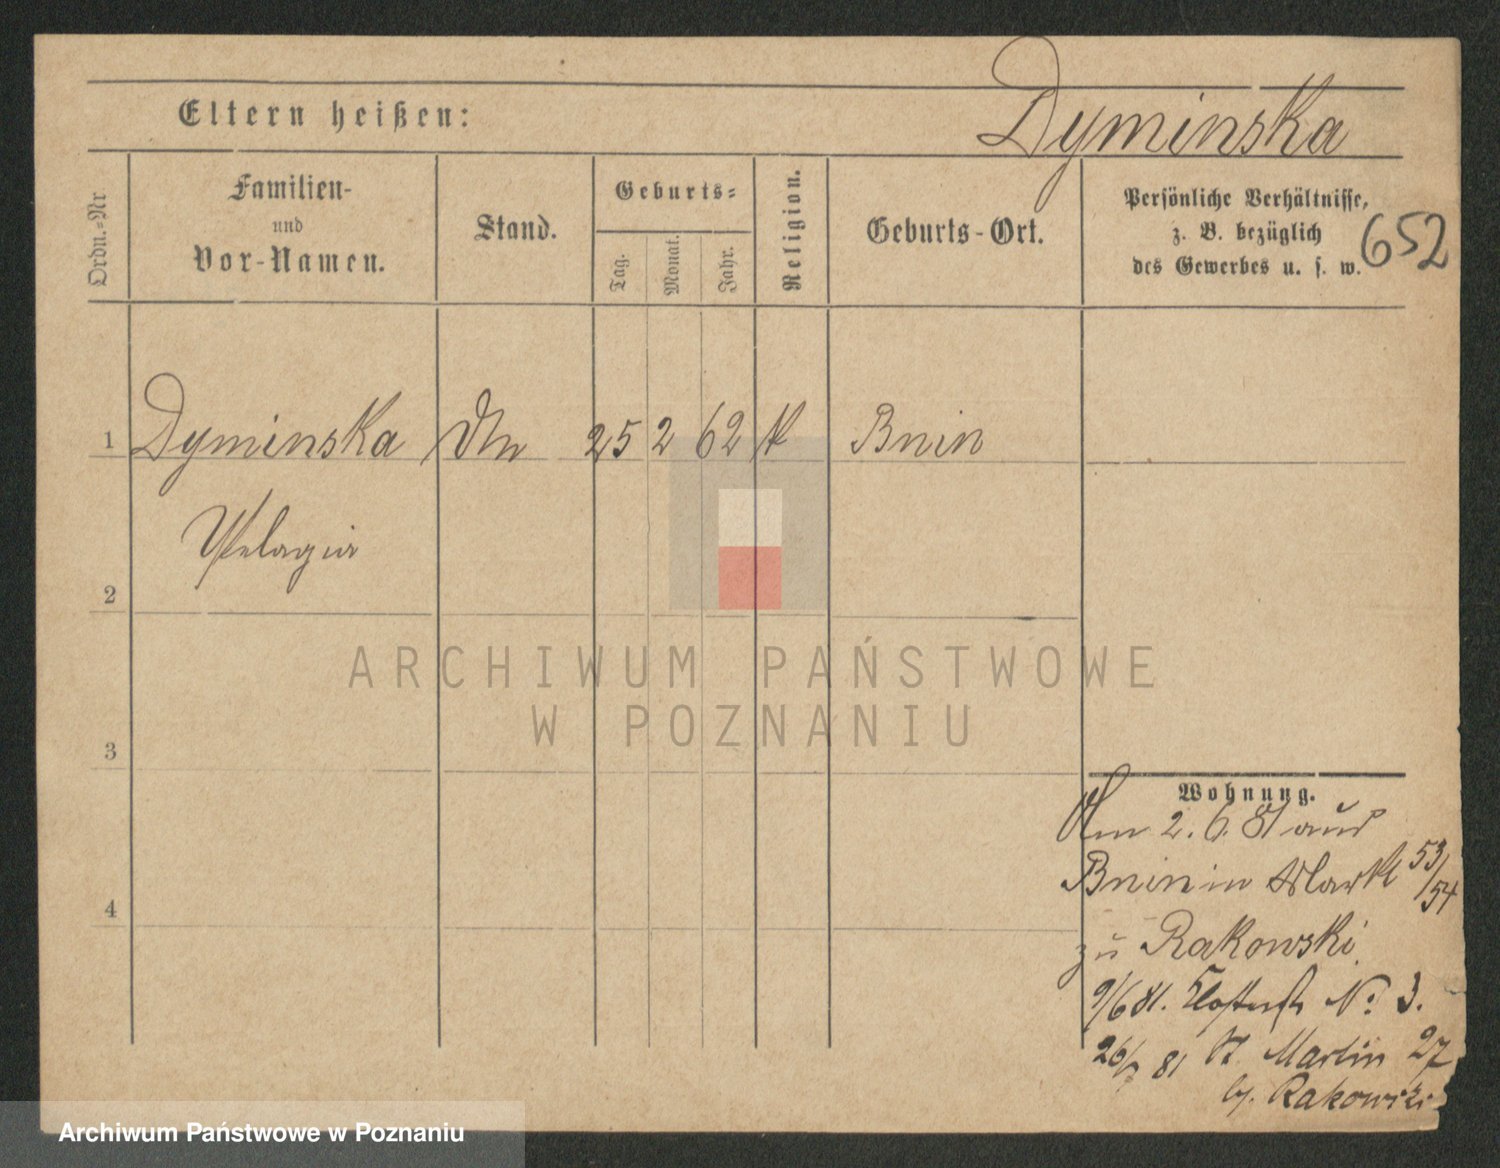 Dyminska
Eltern heißen:
Ordn.-Nr
Familien-
und
Vor-Namen.
Stand.
Geburts-
Tag.
Monat.
Jahr.
Religion.
Geburts-Ort.
Persönliche Verhältnisse,
z. B. bezüglich
des Gewerbes u. s. w.
652
1 Dyminska 25 2 62 K Bnin
Pelagia
2
3
4
Wohnung.
Am 2. 6. 81 aus
Bnin in Markt 53/54
zu Rakowski
9/6 81. Klosterstr No 3.
26/ 81 St. Martin 27
by. Rakowski
ARCHIWUM PAŃSTWOWE
W POZNANIU
Archiwum Państwowe w Poznaniu